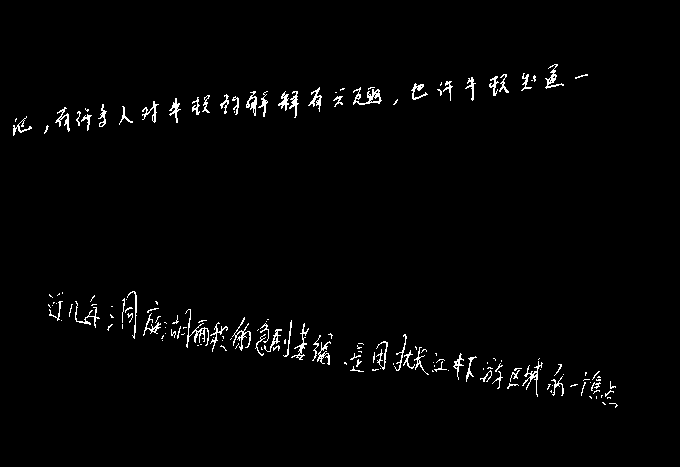 况，有许多人对牛顿的解释有兴趣，也许牛顿知道一
近几年洞庭湖面积的急剧萎缩，是困扰长江中下游区域的一焦点